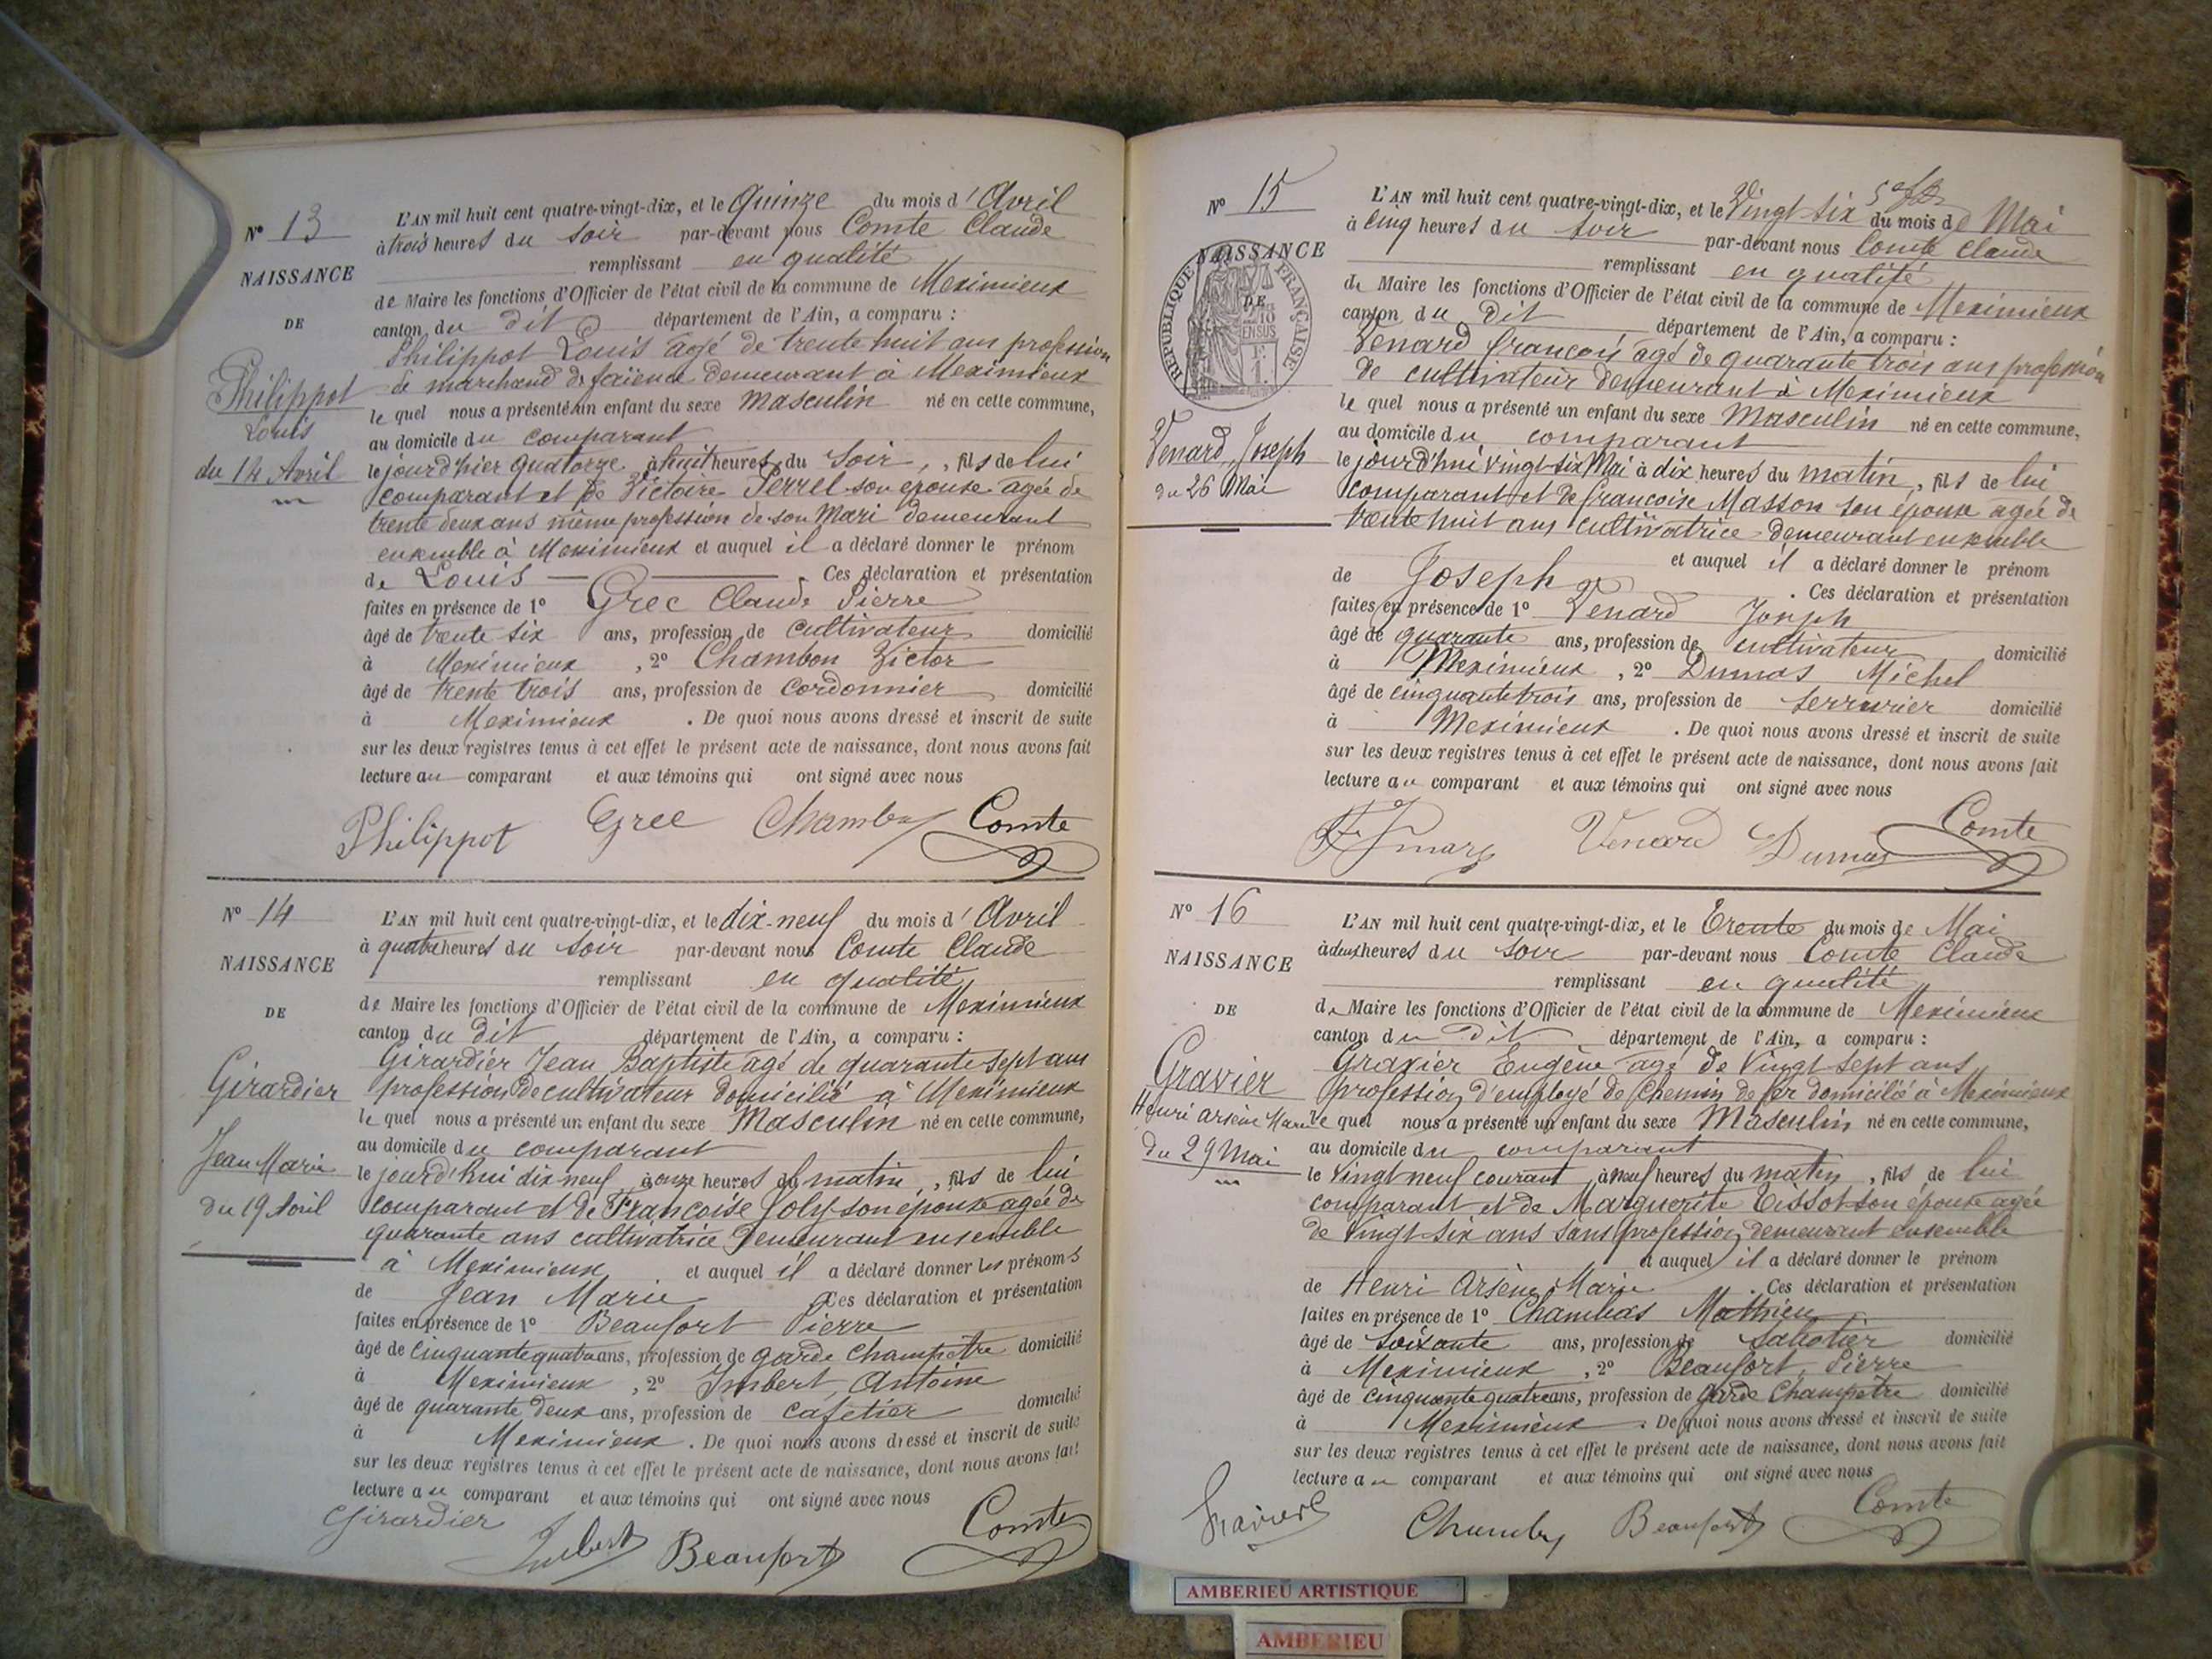 N° 13
NAISSANCE
DE
Philippot
Louis
du 14 Avril
L'AN mil huit cent quatre-vingt-dix, et le Quinze du mois d'Avril
à trois heures du soir par-devant nous Comte Claude
remplissant en qualité
de Maire les fonctions d'Officier de l'état civil de la commune de Meximieux
canton du dit département de l'Ain, a comparu :
Philippot Louis âgé de trente huit ans profession
de marchand de faïence demeurant à Meximieux
le quel nous a présenté un enfant du sexe Masculin né en cette commune,
au domicile du comparant
le jourd'hier quatorze à huit heures du Soir, fils de lui
comparant et de Victoire Perrel son épouse agée de
trente deux ans même profession de son Mari demeurant
ensemble à Meximieux et auquel il a déclaré donner le prénom
de Louis . Ces déclaration et présentation
faites en présence de 1° Grec Claude Pierre
âgé de trente six ans, profession de cultivateur domicilié
à Meximieux , 2° Chambon Victor
âgé de trente trois ans, profession de Cordonnier domicilié
à Meximieux . De quoi nous avons dressé et inscrit de suite
sur les deux registres tenus à cet effet le présent acte de naissance, dont nous avons fait
lecture au comparant et aux témoins qui ont signé avec nous
Philippot Grec Chambon Comte
N° 14
NAISSANCE
DE
Girardier
Jean Marie
du 19 Avril
L'AN mil huit cent quatre-vingt-dix, et le dix-neuf du mois d'Avril
à quatre heures du soir par-devant nous Comte Claude
remplissant en qualité
de Maire les fonctions d'Officier de l'état civil de la commune de Meximieux
canton du dit département de l'Ain, a comparu :
Girardier Jean Baptiste agé de quarante sept ans
profession de cultivateur domicilié à Meximieux
le quel nous a présenté un enfant du sexe Masculin né en cette commune,
au domicile du comparant
le jourd'hui dix neuf à onze heures du matin, fils de lui
comparant et de Françoise Joly son épouse agée de
quarante ans cultivatrice demeurant ensemble
à Meximieux et auquel il a déclaré donner les prénoms
de Jean Marie Ces déclaration et présentation
faites en présence de 1° Beaufort Pierre
âgé de cinquante quatre ans, profession de garde Champêtre domicilié
à Meximieux , 2° Imbert Antoine
âgé de quarante deux ans, profession de cafetier domicilié
à Meximieux . De quoi nous avons dressé et inscrit de suite
sur les deux registres tenus à cet effet le présent acte de naissance, dont nous avons fait
lecture au comparant et aux témoins qui ont signé avec nous
Girardier Imbert Beaufort Comte
N° 15
NAISSANCE
DE
RÉPUBLIQUE FRANÇAISE
Venard Joseph
du 26 Mai
L'AN mil huit cent quatre-vingt-dix, et le Vingt-six du mois de Mai
à cinq heures du soir par-devant nous Comte Claude
remplissant en qualité
de Maire les fonctions d'Officier de l'état civil de la commune de Meximieux
canton du Dit département de l'Ain, a comparu :
Venard françois âgé de quarante trois ans profession
de cultivateur demeurant à Meximieux
le quel nous a présenté un enfant du sexe Masculin né en cette commune,
au domicile du comparant
le jourd'hui vingt-six Mai à dix heures du matin, fils de lui
comparant et de françoise Masson son épouse agée de
trente huit ans cultivatrice demeurant ensemble
et auquel il a déclaré donner le prénom
de Joseph . Ces déclaration et présentation
faites en présence de 1° Venard Joseph
âgé de quarante ans, profession de cultivateur domicilié
à Meximieux , 2° Dumas Michel
âgé de cinquante trois ans, profession de serrurier domicilié
à Meximieux . De quoi nous avons dressé et inscrit de suite
sur les deux registres tenus à cet effet le présent acte de naissance, dont nous avons fait
lecture au comparant et aux témoins qui ont signé avec nous
Venard Dumas Comte
N° 16
NAISSANCE
DE
Gravier
Henri Arsène Marie
du 29 Mai
L'AN mil huit cent quatre-vingt-dix, et le Trente du mois de Mai
à deux heures du soir par-devant nous Comte Claude
remplissant en qualité
de Maire les fonctions d'Officier de l'état civil de la commune de Meximieux
canton du Dit département de l'Ain, a comparu :
Gravier Eugène agé de Vingt sept ans
profession d'employé de Chemin de fer domicilié à Meximieux
le quel nous a présenté un enfant du sexe Masculin né en cette commune,
au domicile du comparant
le Vingt neuf courant à neuf heures du matin, fils de lui
comparant et de Marguerite Tissot son épouse agée
de Vingt six ans sans profession demeurant ensemble
et auquel il a déclaré donner le prénom
de Henri Arsène Marie . Ces déclaration et présentation
faites en présence de 1° Chambas Mathieu
âgé de Soixante ans, profession de sabotier domicilié
à Meximieux , 2° Beaufort, Pierre
âgé de cinquante quatre ans, profession de garde Champêtre domicilié
à Meximieux . De quoi nous avons dressé et inscrit de suite
sur les deux registres tenus à cet effet le présent acte de naissance, dont nous avons fait
lecture au comparant et aux témoins qui ont signé avec nous
Gravier Beaufort Comte
AMBERIEU ARTISTIQUE
AMBERIEU